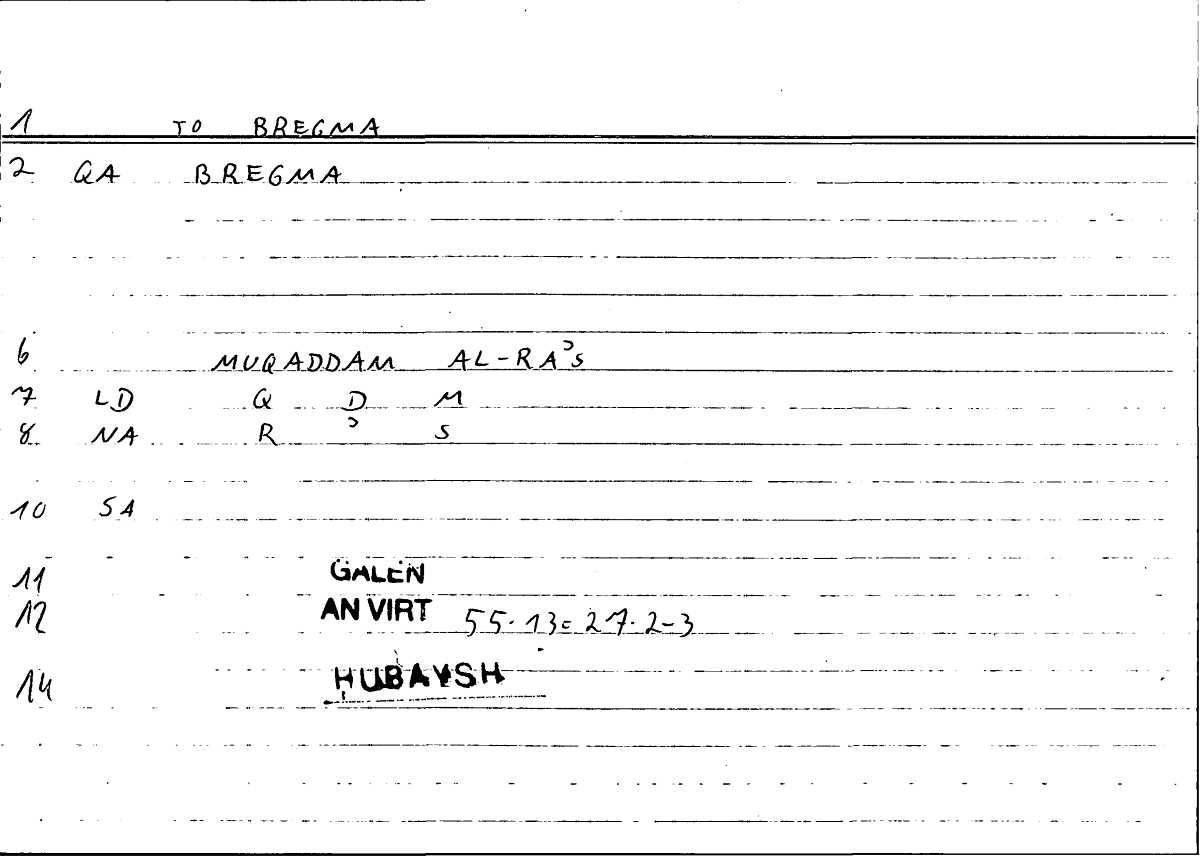 1 TO BREGMA
2 QA BREGMA
6 MUQADDAM AL-RAʾS
7 LD Q D M
8 NA R ʾ S
10 SA
11 GALEN
12 AN VIRT 55.13=27.2-3
14 HUBAYSH